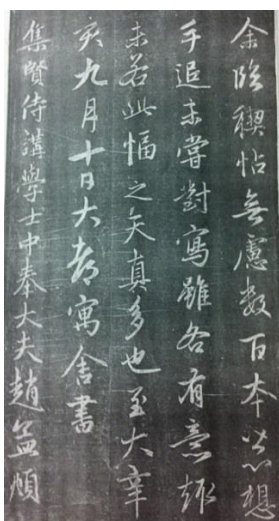 余臨禊帖無慮數百本皆心想
手追未嘗對寫雖各有意趣
未若此幅之天真多也至大辛
亥九月十日大都寓舍書
集賢侍講學士中奉大夫趙孟頫